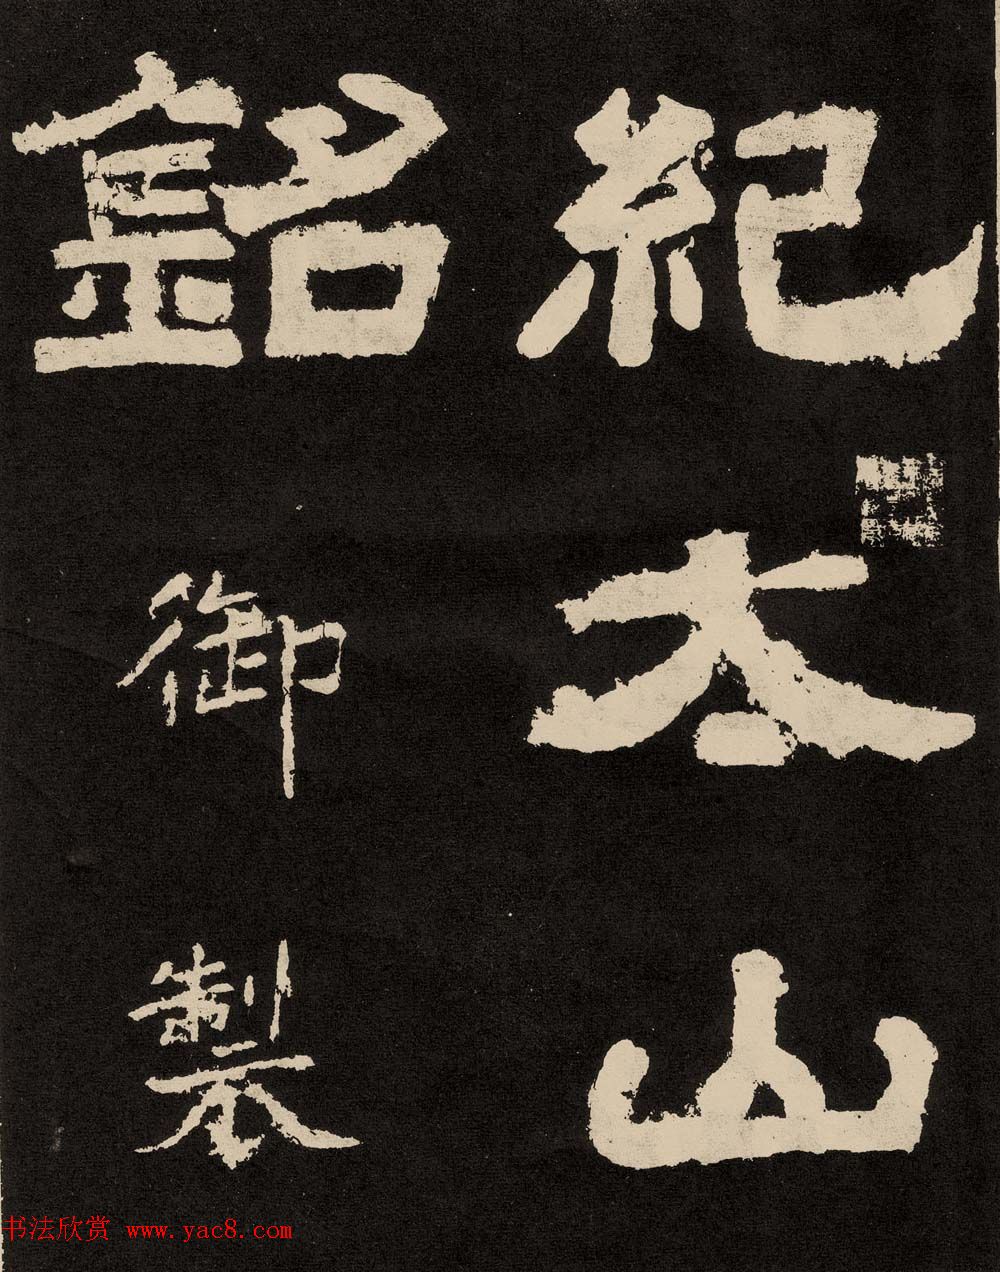 紀太山
銘御製
书法欣赏 www.yac8.com